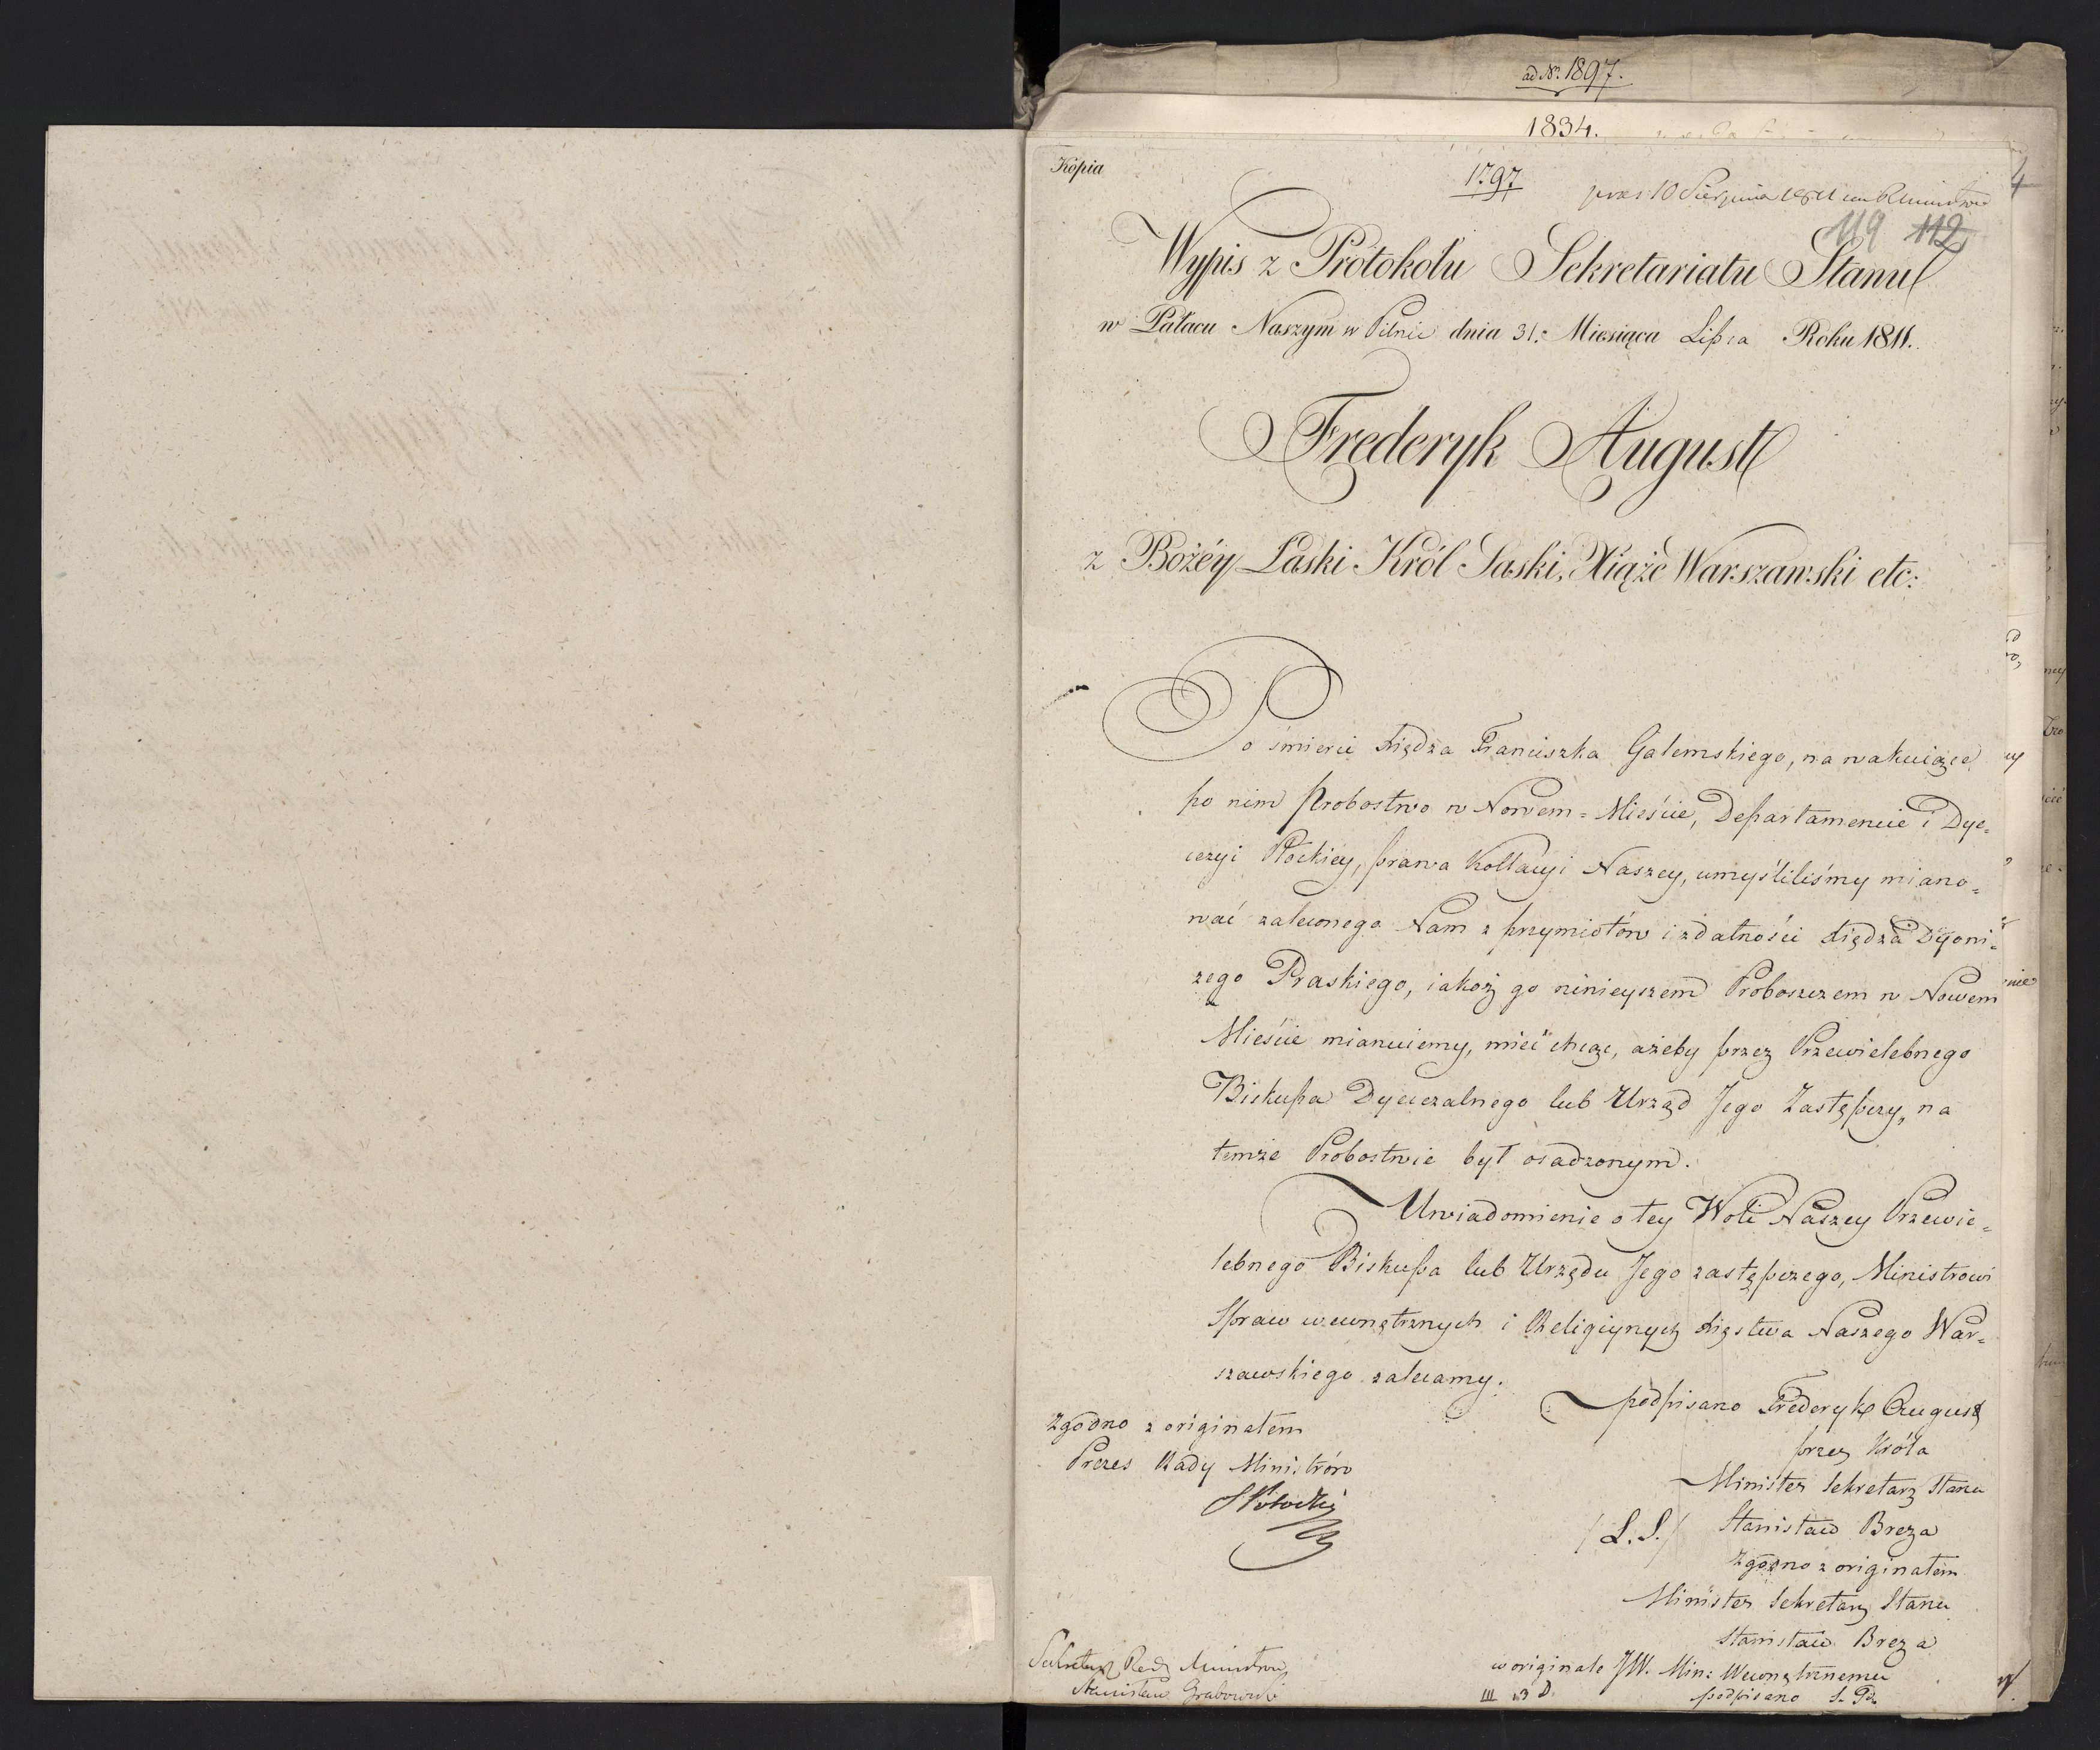 ad Nr. 1897.
1834.
Kópia
1797
prez 10 Sierpnia 1811
4
119 112
Wypis z Protokołu Sekretariatu Stanu
w Pałacu Naszym w Pilnic dnia 31. Miesiąca Lipca Roku 1811.
Frederyk August
z Bożéy Łaski Król Saski, Xiąże Warszawski etc:
Po śmierci Xiędza Franciszka Galemskiego, na wakuiące
po nim Probostwo w Nowem-Mieście, Departamencie i Dye-
cezyi Płockiey, prawa Kollacyi Naszey, umyśliliśmy miano-
wać zaleconego Nam z przymiotów i zdatności Xiędza Dyoni-
zego Praskiego, iakoż go ninieyszem Proboszczem w Nowem
Mieście mianuiemy, mieć chcąc, ażeby przez Przewielebnego
Biskupa Dyecezalnego lub Urząd Jego Zastępczy, na
temże Probostwie był osadzonym.
Uwiadomienie o tey Woli Naszey Przewie-
lebnego Biskupa lub Urzędu Jego zastępczego, Ministrowi
Spraw wewnętrznych i Religiynych Xięstwa Naszego War-
szawskiego zalecamy.
podpisano Frederyk August
przez Króla
Minister Sekretarz Stanu
/L.S./ Stanisław Breza
Zgodno z originałem
Minister Sekretarz Stanu
Stanisław Breza
Zgodno z originałem
Prezes Rady Ministrów
S Potocki
Sekretarz Rady Ministrów
Stanisław Grabowski
w originale JW. Min: Wewnętrznemu
podpisano S. P.
III w 3 D.